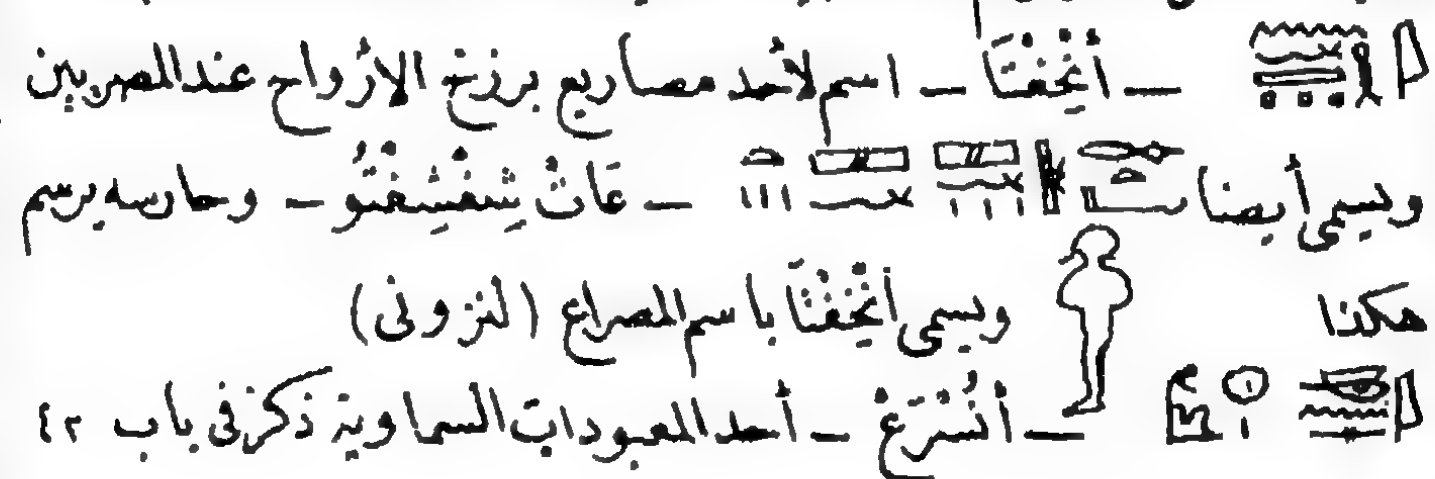 — أَنْخِفْتَا — اسم لأحد مصاريع برزخ الأرواح عند المصريين
ويسمى أيضا — عَاتْ شِفْشِفْتُو — وحارسه يرسم
هكذا ويسمى أَنْخِفْتَا باسم المصراع (لنزونى)
— أَنُسْرَعْ — أحد المعبودات السماوية ذكر فى باب ٤٢